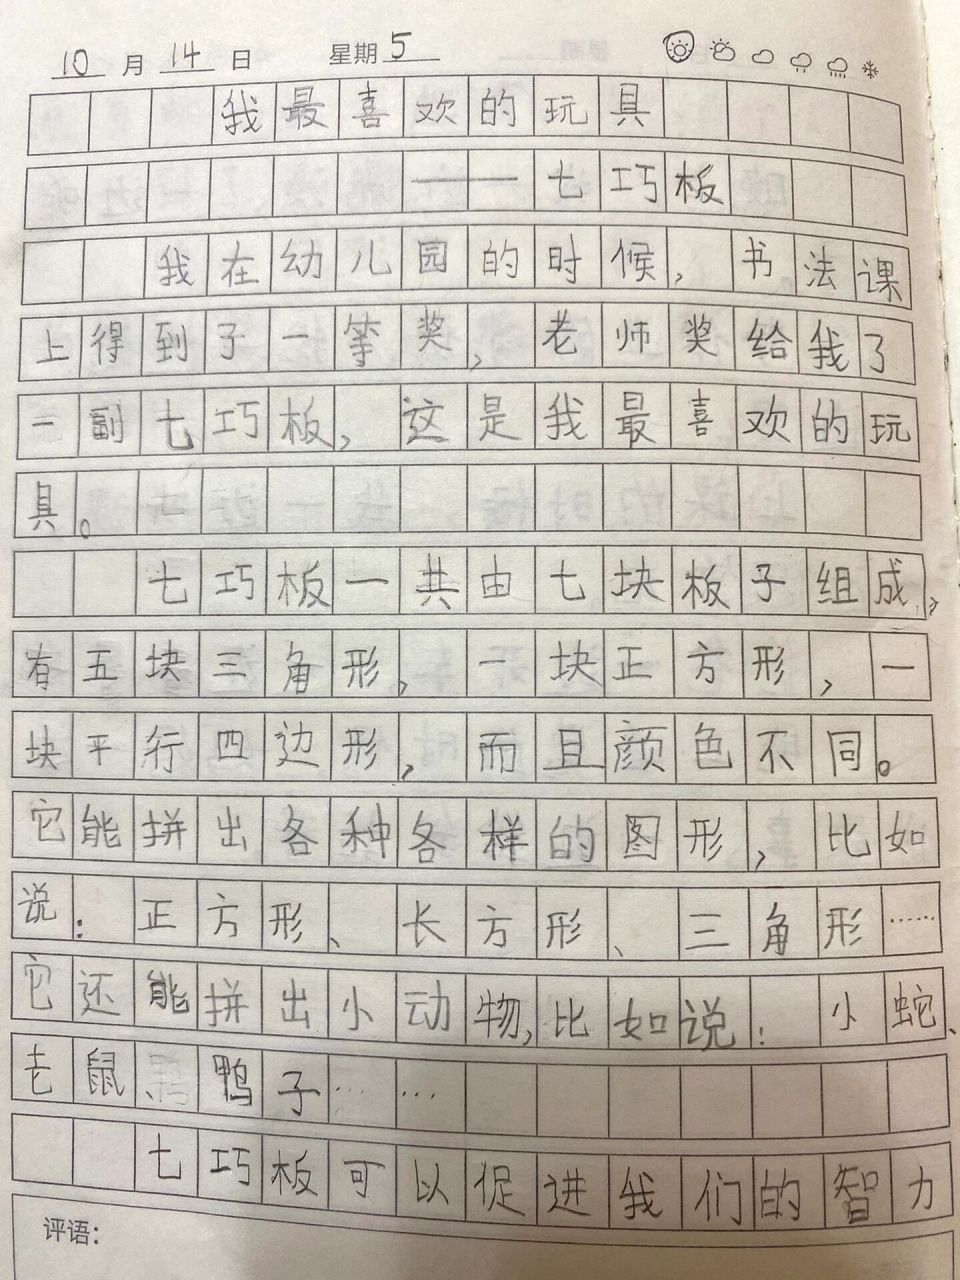 10月14日 星期5
我最喜欢的玩具
——七巧板
我在幼儿园的时候，书法课
上得到子一等奖，老师奖给我了
一副七巧板，这是我最喜欢的玩
具。
七巧板一共由七块板子组成，
有五块三角形，一块正方形，一
块平行四边形，而且颜色不同。
它能拼出各种各样的图形，比如
说：正方形、长方形、三角形……
它还能拼出小动物，比如说：小蛇、
老鼠、鸭子……
七巧板可以促进我们的智力
评语：